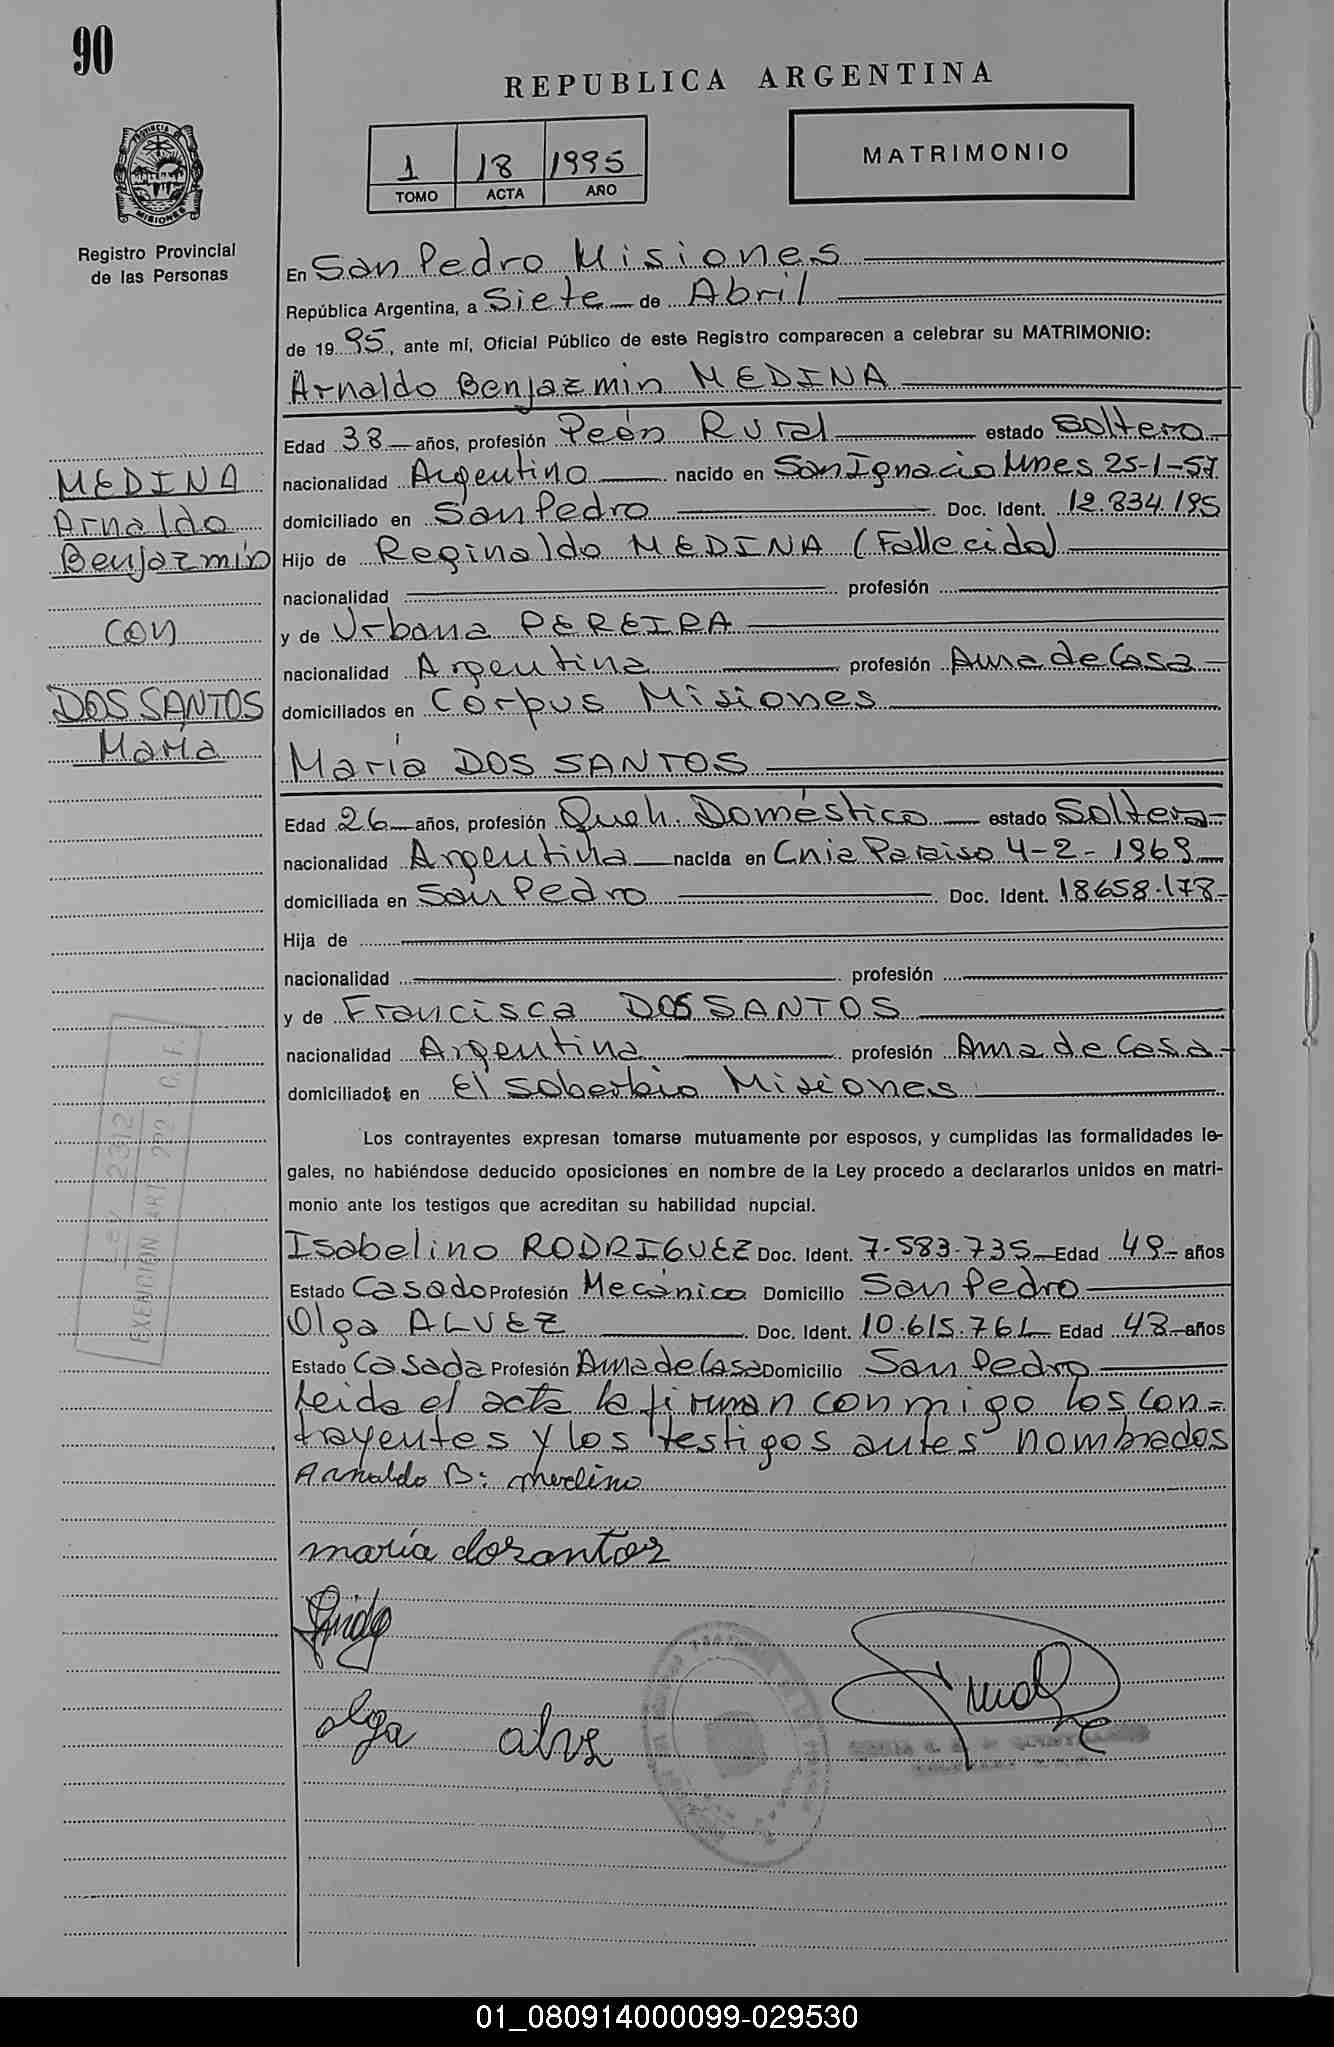 90
REPUBLICA ARGENTINA
PROVINCIA DE
MISIONES
1 18 1995
TOMO ACTA AÑO
MATRIMONIO
Registro Provincial
de las Personas
En San Pedro Misiones
República Argentina, a Siete de Abril
de 19 95, ante mí, Oficial Público de este Registro comparecen a celebrar su MATRIMONIO:
Arnaldo Benjazmin MEDINA
Edad 38 años, profesión Peón Rural estado Soltero
MEDINA
Arnaldo
Benjazmín
con
DOS SANTOS
María
nacionalidad Argentino nacido en San Ignacio Mnes 25-1-57
domiciliado en San Pedro Doc. Ident. 12.834.195
Hijo de Reginaldo MEDINA (Fallecido)
nacionalidad profesión
y de Urbana PEREIRA
nacionalidad Argentina profesión Ama de Casa
domiciliados en Corpus Misiones
María DOS SANTOS
Edad 26 años, profesión Queh. Doméstico estado Soltera
nacionalidad Argentina nacida en Cnia Paraiso 4-2-1969
domiciliada en San Pedro Doc. Ident. 18658.178
Hija de
nacionalidad profesión
y de Francisca DOS SANTOS
nacionalidad Argentina profesión Ama de Casa
domiciliados en El Soberbio Misiones
Los contrayentes expresan tomarse mutuamente por esposos, y cumplidas las formalidades le-
gales, no habiéndose deducido oposiciones en nombre de la Ley procedo a declararlos unidos en matri-
monio ante los testigos que acreditan su habilidad nupcial.
Ley 2312
EXENCION ART 292 C. F.
Isabelino RODRIGUEZ Doc. Ident. 7.583.735 Edad 49 años
Estado Casado Profesión Mecánico Domicilio San Pedro
Olga ALVEZ Doc. Ident. 10.615.761 Edad 43 años
Estado Casada Profesión Ama de Casa Domicilio San Pedro
Leida el acta la firman conmigo los con=
trayentes y los testigos antes nombrados
Arnaldo B: medina
maría dosantos
olga alvz
01_080914000099-029530